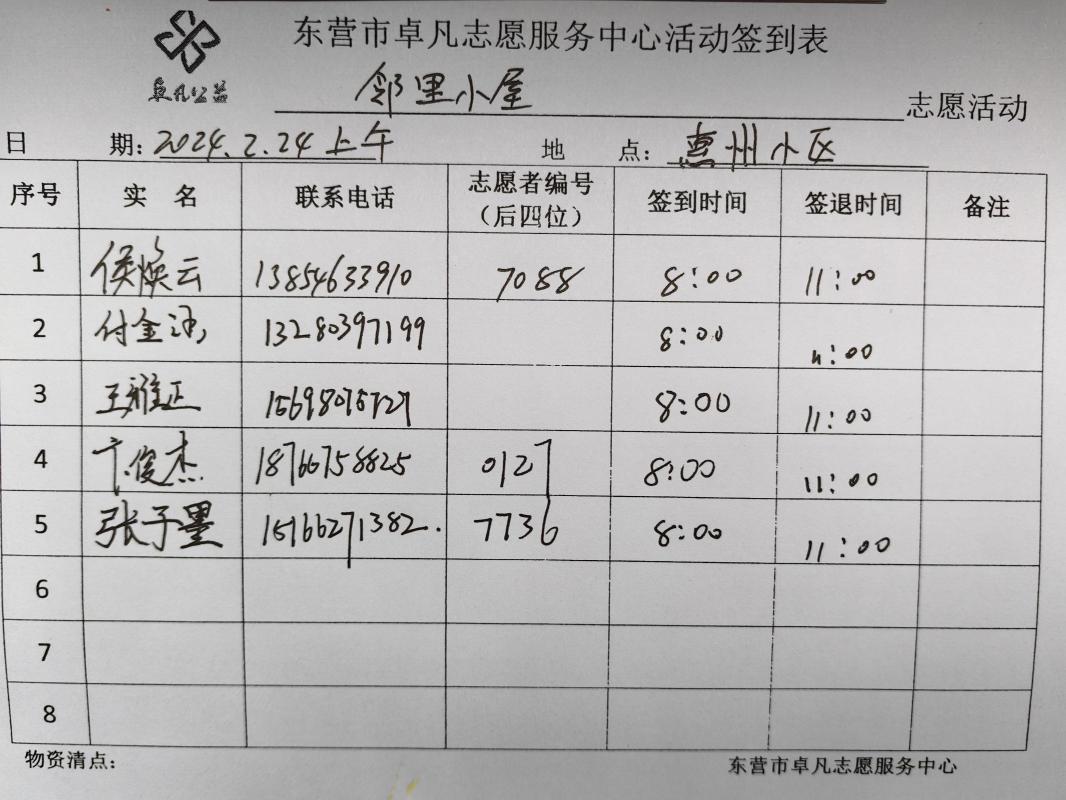 东营市卓凡志愿服务中心活动签到表
卓凡公益
邻里小屋 志愿活动
日 期：2024.2.24上午 地 点：惠州小区
序号 实 名 联系电话 志愿者编号（后四位） 签到时间 签退时间 备注
1 侯焕云 13854633910 7088 8:00 11:00
2 付金 13280397199 8:00 11:00
3 王雅正 15698075727 8:00 11:00
4 卞俊杰 18766758825 0127 8:00 11:00
5 张子墨 15166271382. 7736 8:00 11:00
6
7
8
物资清点： 东营市卓凡志愿服务中心